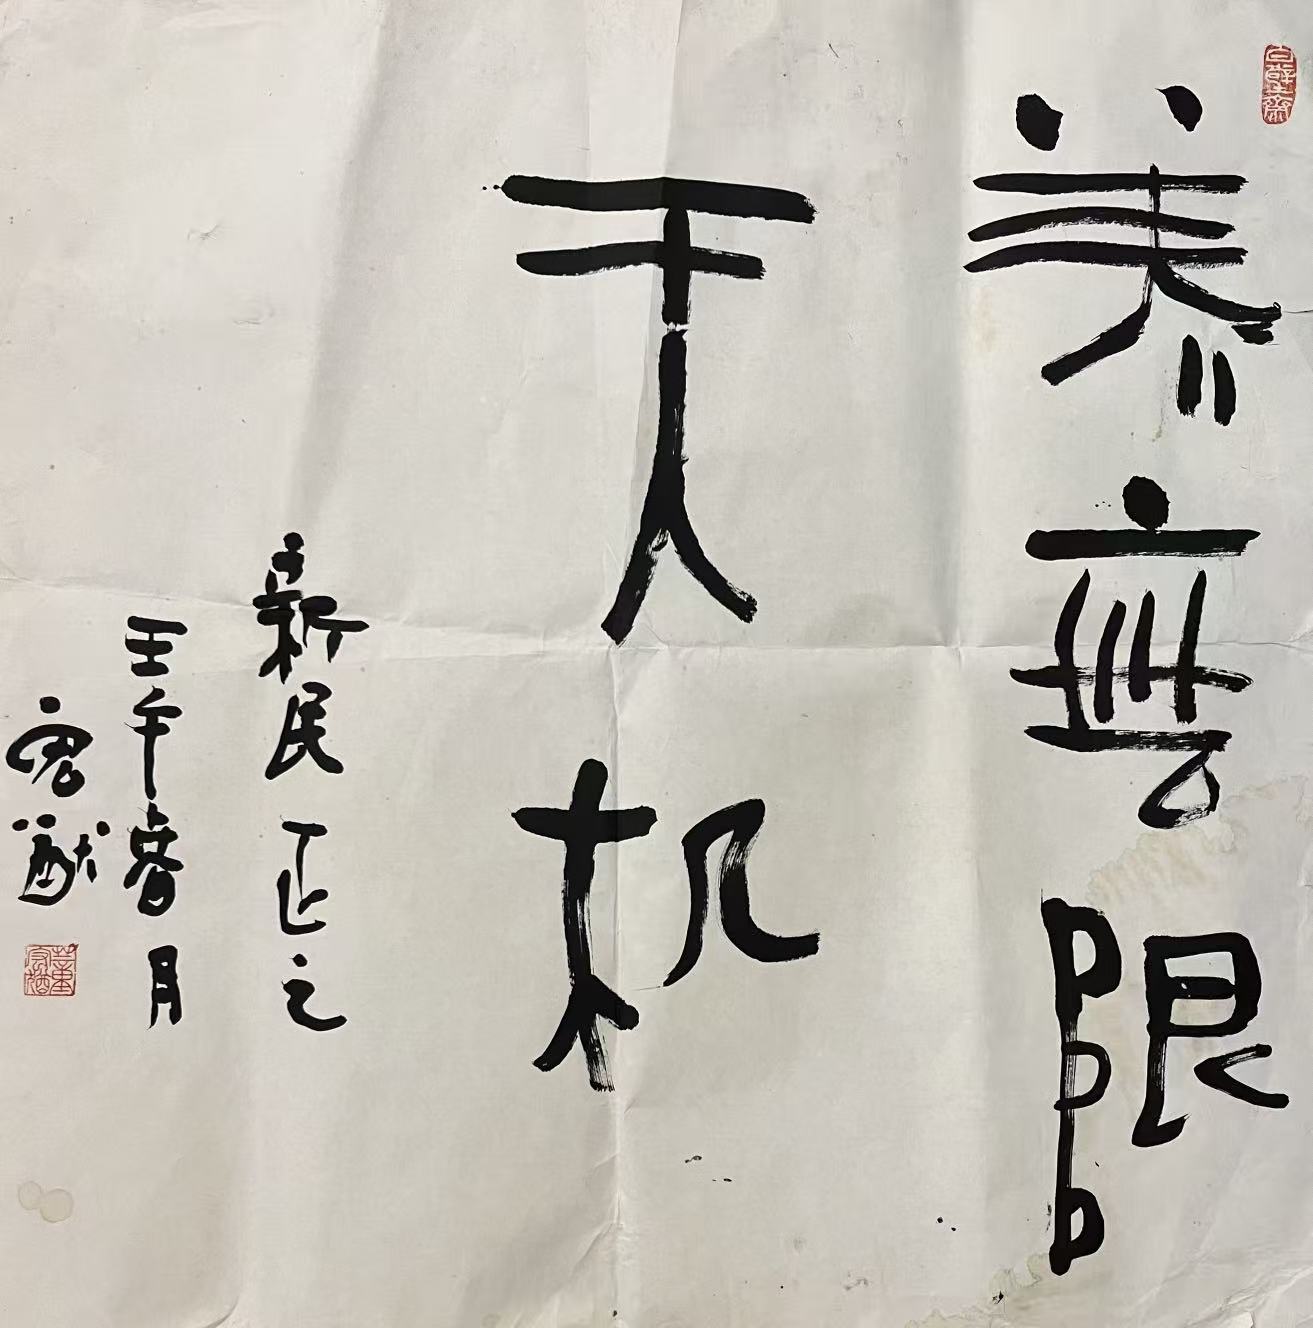 美無限
天机
新民正之
壬午春月
宏猷
董宏猷